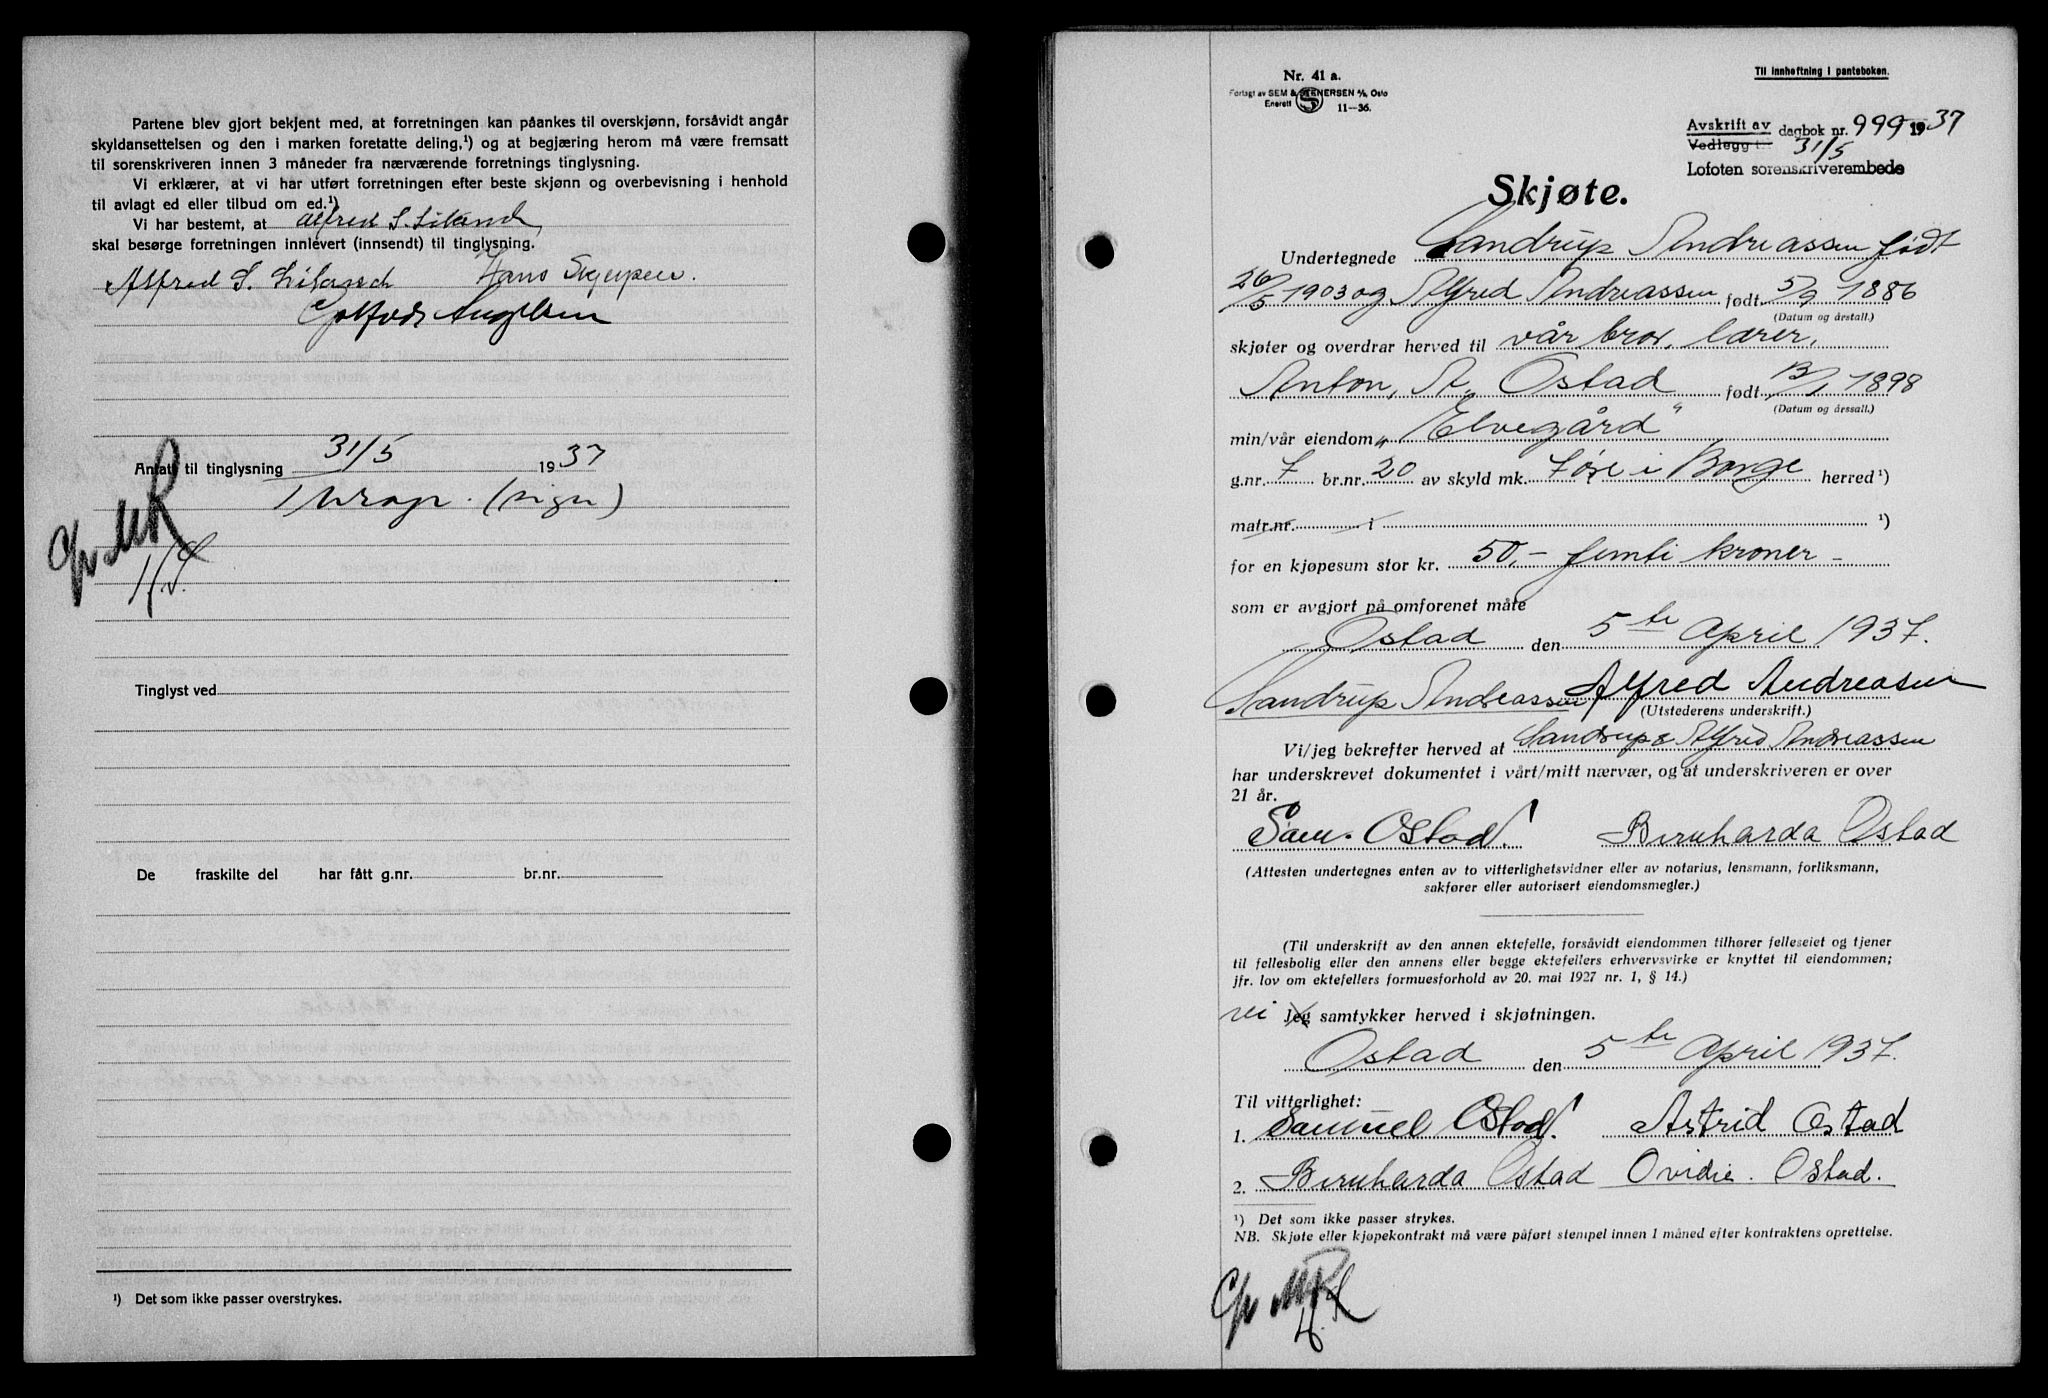 Partene blev gjort bekjent med, at forretningen kan påankes til overskjønn, forsåvidt angår
skyldansettelsen og den i marken foretatte deling,¹) og at begjæring herom må være fremsatt
til sorenskriveren innen 3 måneder fra nærværende forretnings tinglysning.
Vi erklærer, at vi har utført forretningen efter beste skjønn og overbevisning i henhold
til avlagt ed eller tilbud om ed.¹)
Vi har bestemt, at Alfred S. Liland
skal besørge forretningen innlevert (innsendt) til tinglysning.
Alfred S. Liland Hans
Angelsen
Antatt til tinglysning 31/5 1937
(sign)
Tinglyst ved
De fraskilte del har fått g.nr. br.nr.
¹) Det som ikke passer overstrykes.
Nr. 41 a.
Forlagt av SEM & STENERSEN A/S, Oslo
Enerett 11—36.
Til innheftning i panteboken.
Avskrift av dagbok nr. 999 1937
Vedlegg t 31/5
Lofoten sorenskriverembede
Skjøte.
Undertegnede Sandrup Andreassen født
26/5 1903 og Alfred Andreassen født 5/9 1886
(Datum og årstall.)
skjøter og overdrar herved til vår bror, lærer,
Anton, A. Ostad født 13/1 1898
(Datum og årssall.)
min/vår eiendom „Elvegård“
g.nr. 7 br.nr. 20 av skyld mk. 1 øre i Borge herred¹)
matr.nr. i ¹)
for en kjøpesum stor kr. 50,- femti kroner -
som er avgjort på omforenet måte
Ostad den 5te April 1937.
Sandrup Andreassen Alfred Andreasen
(Utstederens underskrift.)
Vi/jeg bekrefter herved at Sandrup & Alfred Andreassen
har underskrevet dokumentet i vårt/mitt nærvær, og at underskriveren er over
21 år.
Sam. Ostad. Bernharda Ostad
(Attesten undertegnes enten av to vitterlighetsvidner eller av notarius, lensmann, forliksmann,
sakfører eller autorisert eiendomsmegler.)
(Til underskrift av den annen ektefelle, forsåvidt eiendommen tilhører felleseiet og tjener
til fellesbolig eller den annens eller begge ektefellers erhvervsvirke er knyttet til eiendommen;
jfr. lov om ektefellers formuesforhold av 20. mai 1927 nr. 1, § 14.)
vi Jeg samtykker herved i skjøtningen.
Ostad den 5te April 1937.
Til vitterlighet:
1. Samuel Ostad. Astrid Ostad
2. Bernharda Ostad Ovidie. Ostad.
¹) Det som ikke passer strykes.
NB. Skjøte eller kjøpekontrakt må være påført stempel innen 1 måned efter kontraktens oprettelse.